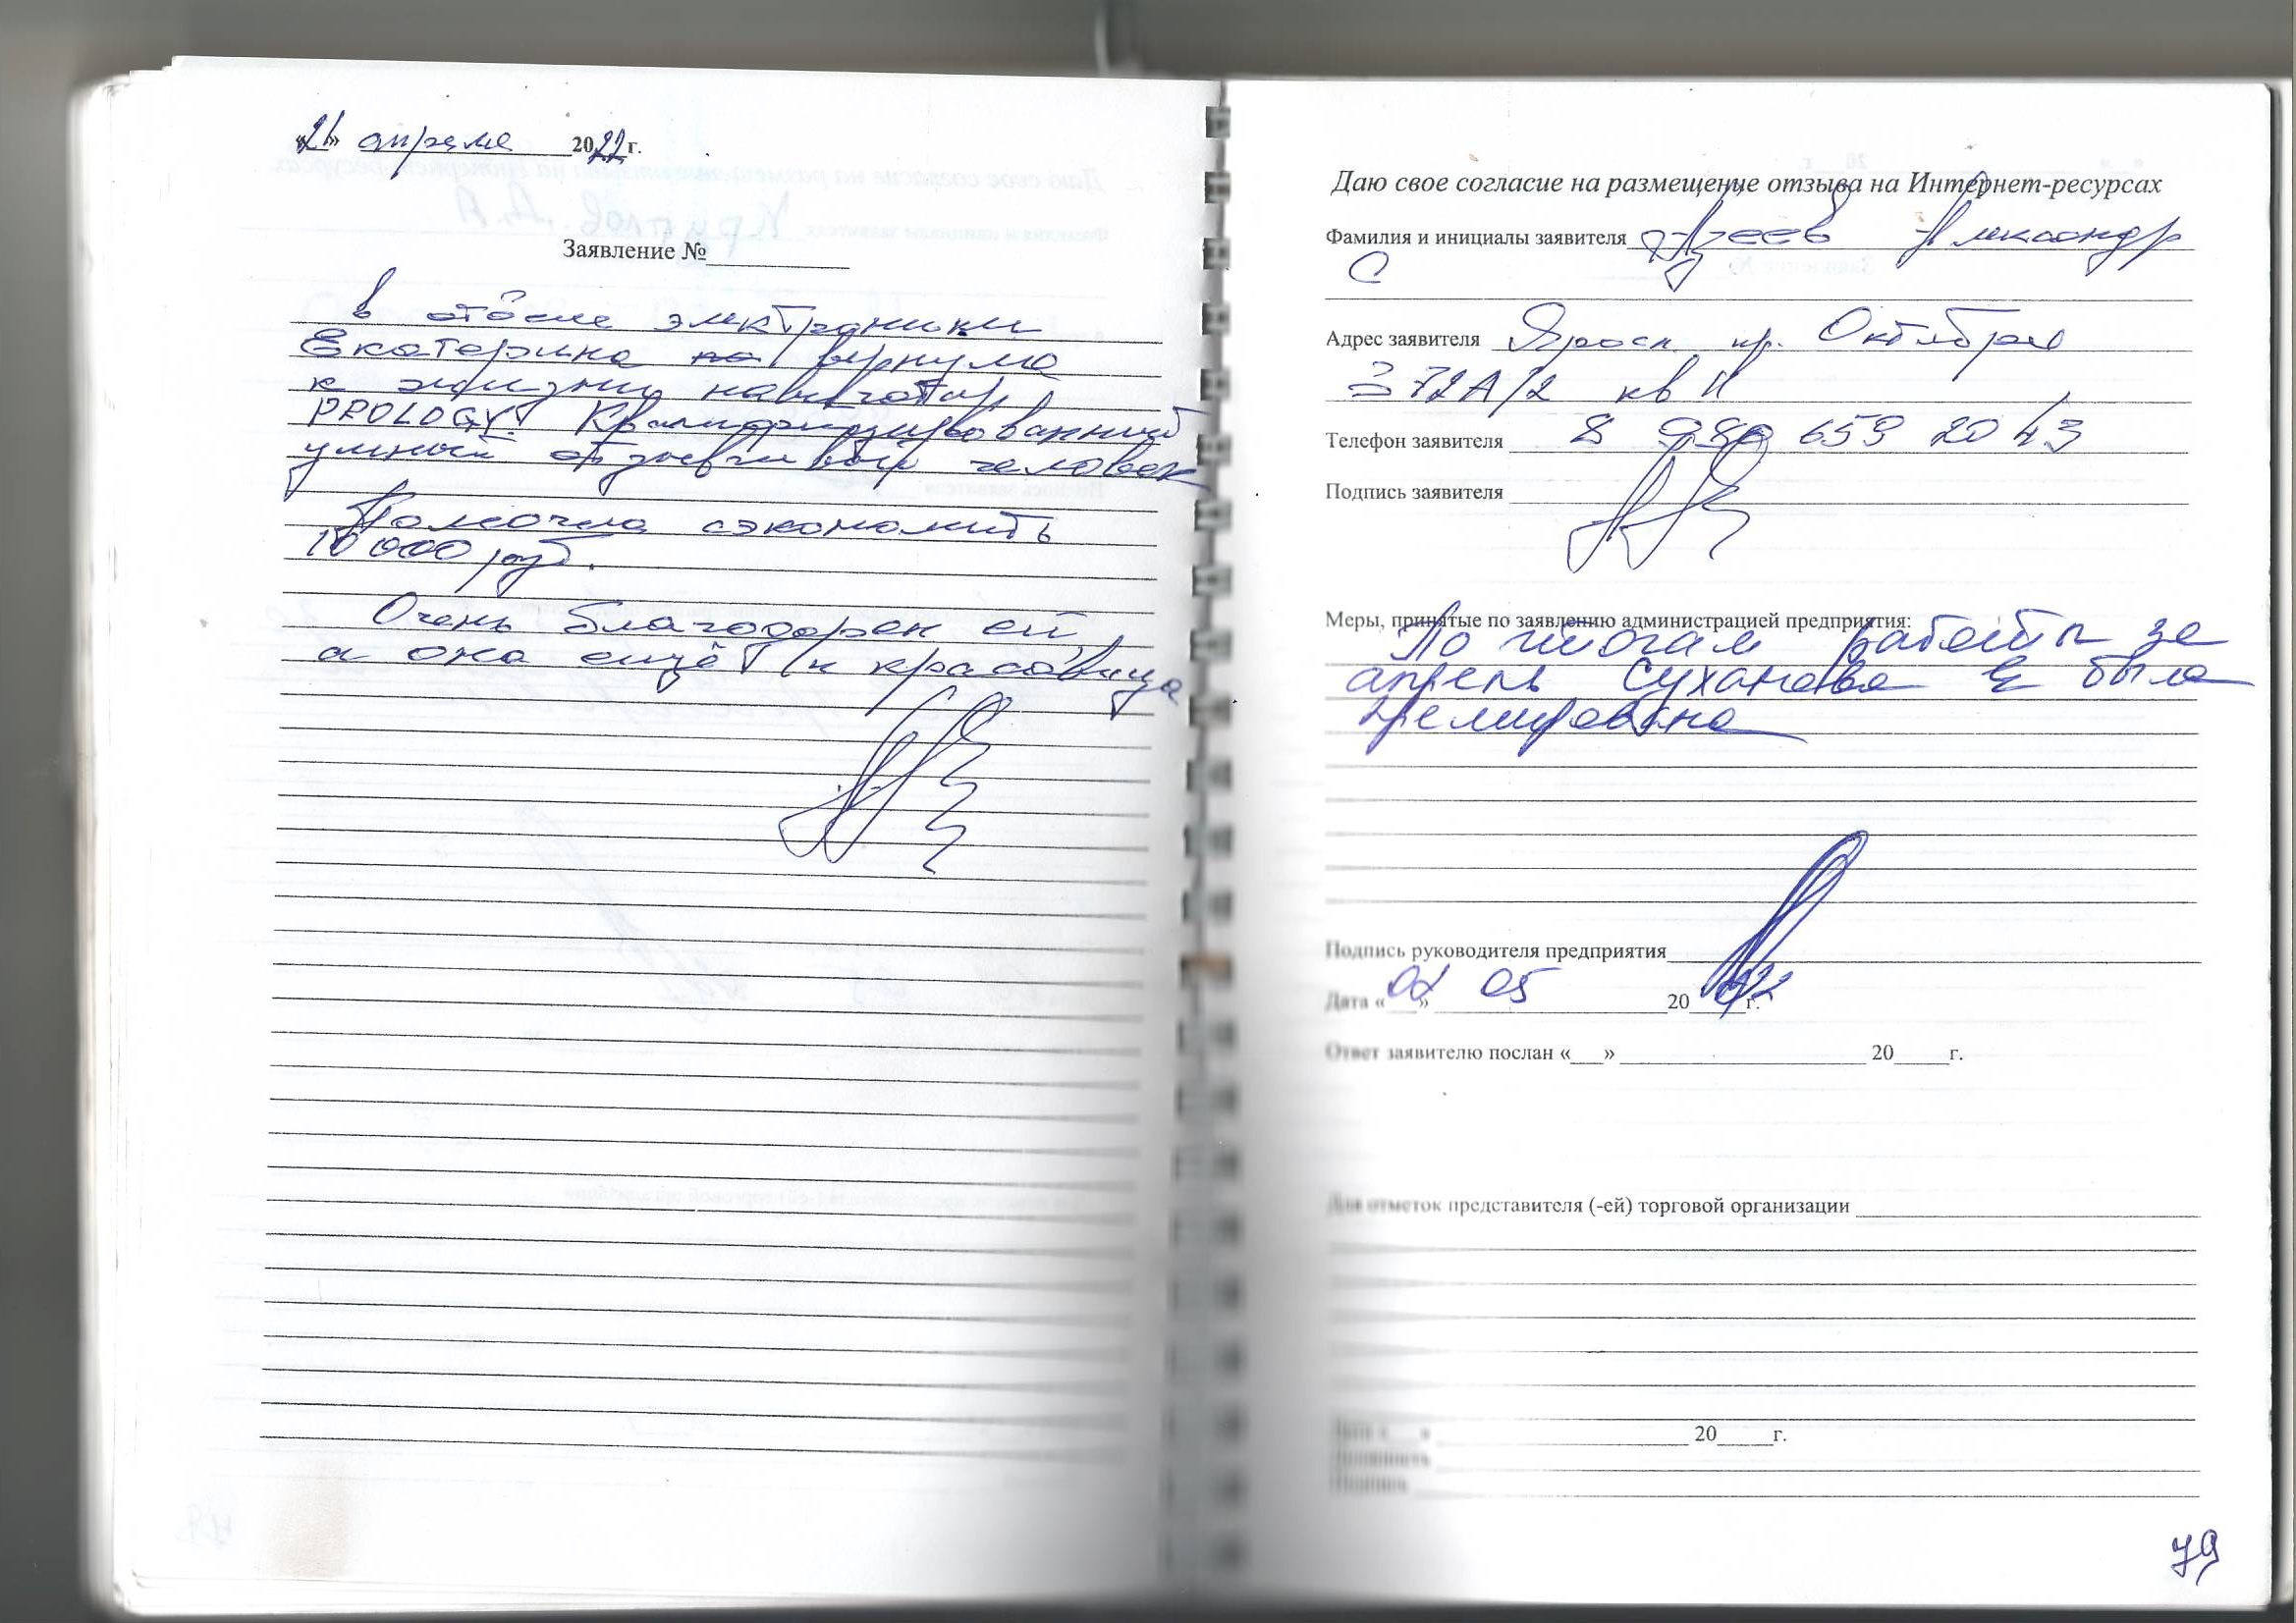 «21» апреля 2022 г.
Заявление №
В отделе электроники
Екатерина вернула
к жизни навигатор
PROLOGY. Квалифицированный
умный отзывчивый человек
Помогла сэкономить
10 000 руб.
Очень благодарен ей,
а она ещё и красавица
Даю свое согласие на размещение отзыва на Интернет-ресурсах
Фамилия и инициалы заявителя Александр
С
Адрес заявителя Яросл пр. Октября
372А/2 кв
Телефон заявителя 8 980 659 20 43
Подпись заявителя
Меры, принятые по заявлению администрацией предприятия:
По итогам работы за
апрель Суханова Е была
премирована
Подпись руководителя предприятия
Дата « » 05 2022 г.
Ответ заявителю послан «___» 20 г.
Для отметок представителя (-ей) торговой организации
Дата «___» 20 г.
Должность
Подпись
79